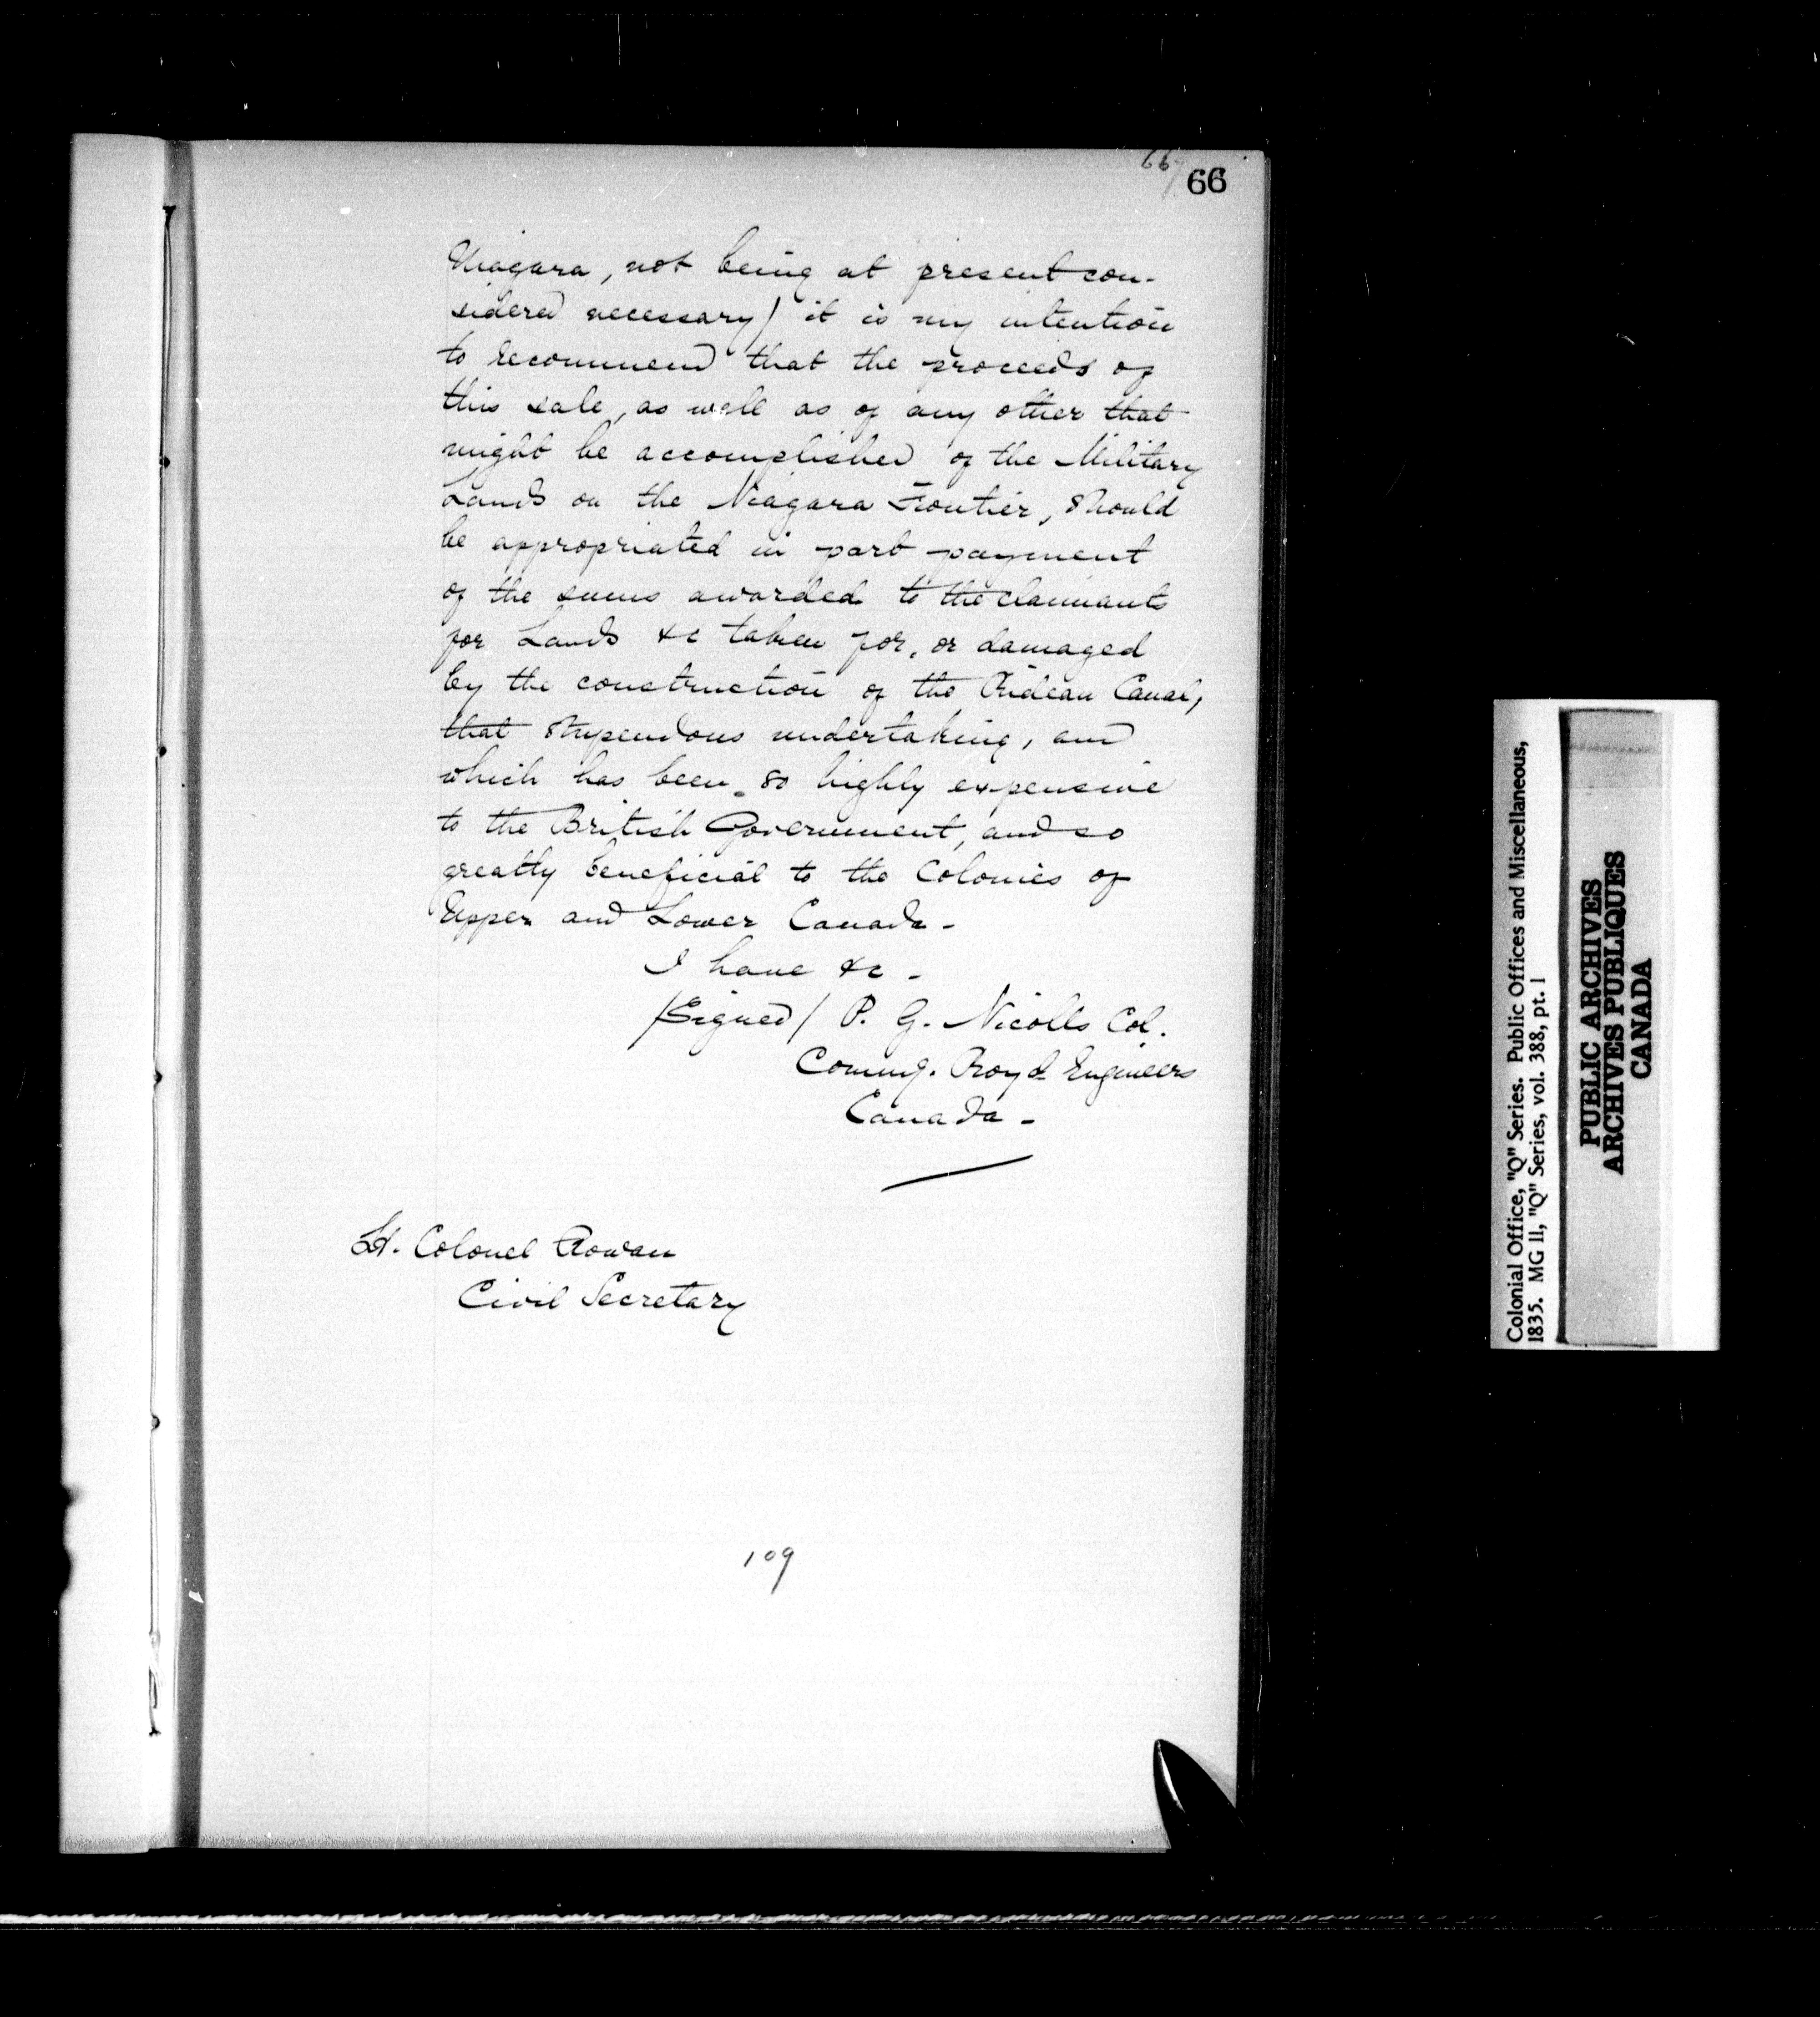 66
66
Niagara, not being at present con-
sidered necessary/ it is my intention
to recommend that the proceeds of
this sale, as well as of any other that
might be accomplished of the Military
Lands on the Niagara Frontier, should
be appropriated in part payment
of the sums awarded to the claimants
for Lands &c taken for, or damaged
by the construction of the Rideau Canal,
that stupendous undertaking, and
which has been so highly expensive
to the British Government, and so
greatly beneficial to the Colonies of
Upper and Lower Canada -
I have &c -
/Signed/ P. G. Nicolls Col.
Commg. Royal Engineers
Canada -
Lt. Colonel Rowan
Civil Secretary
109
Colonial Office, "Q" Series. Public Offices and Miscellaneous,
1835. MG 11, "Q" Series, vol. 388, pt. 1
PUBLIC ARCHIVES
ARCHIVES PUBLIQUES
CANADA